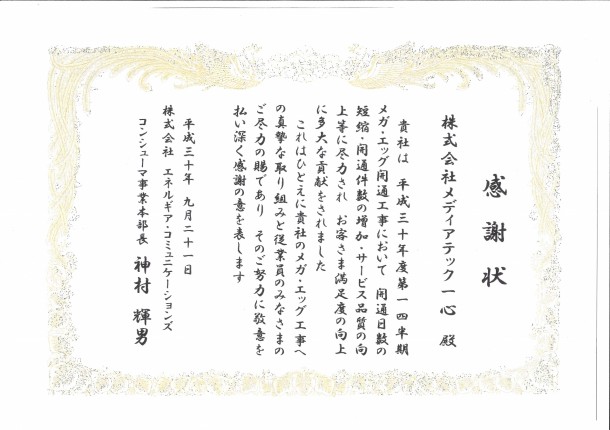 感謝状
株式会社メディアテック一心 殿
貴社は 平成三十年度第一四半期
メガ・エッグ開通工事において 開通日数の
短縮・開通件数の増加・サービス品質の向
上等に尽力され お客さま満足度の向上
に多大な貢献をされました
これはひとえに貴社のメガ・エッグ工事へ
の真摯な取り組みと従業員のみなさまの
ご尽力の賜であり そのご努力に敬意を
払い深く感謝の意を表します
平成三十年 九月二十一日
株式会社 エネルギア・コミュニケーションズ
コンシューマ事業本部長 神村 輝男